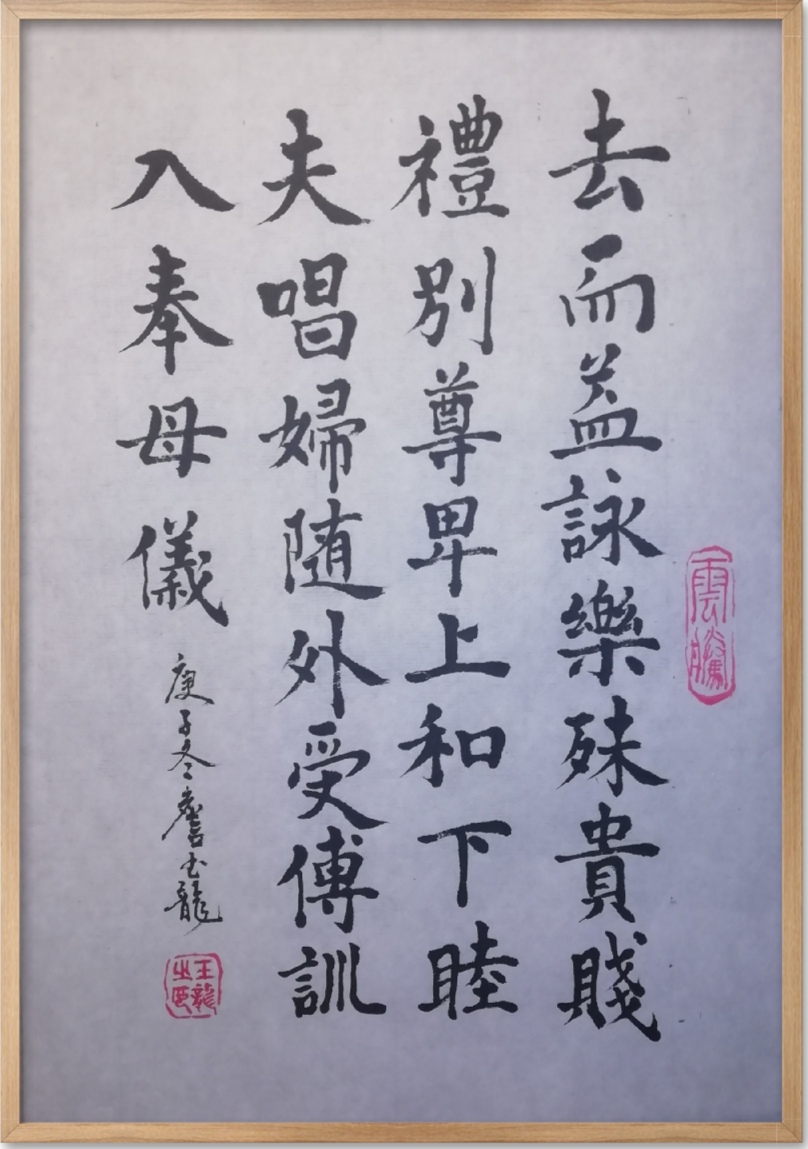 去而益詠樂殊貴賤
禮別尊卑上和下睦
夫唱婦随外受傅訓
入奉母儀
庚子冬詹玉龍
雲騰